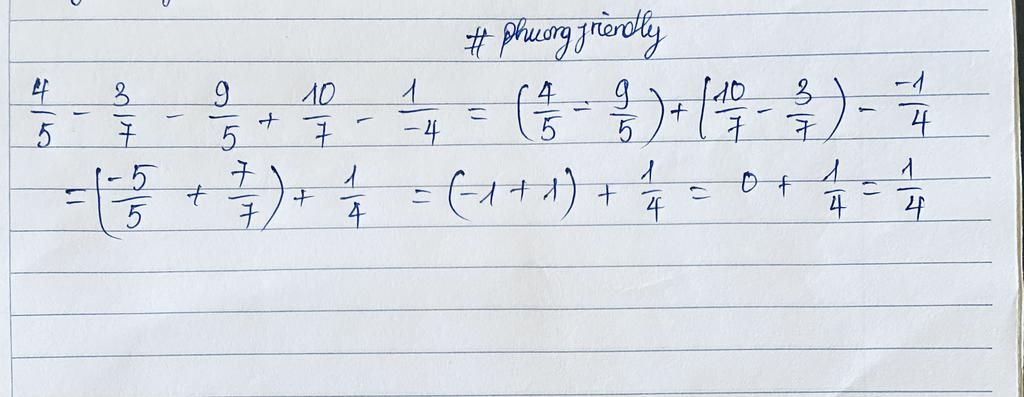 # phuongfriendly
4/5 - 3/7 - 9/5 + 10/7 - 1/-4 = (4/5 - 9/5) + (10/7 - 3/7) - -1/4
= (-5/5 + 7/7) + 1/4 = (-1 + 1) + 1/4 = 0 + 1/4 = 1/4